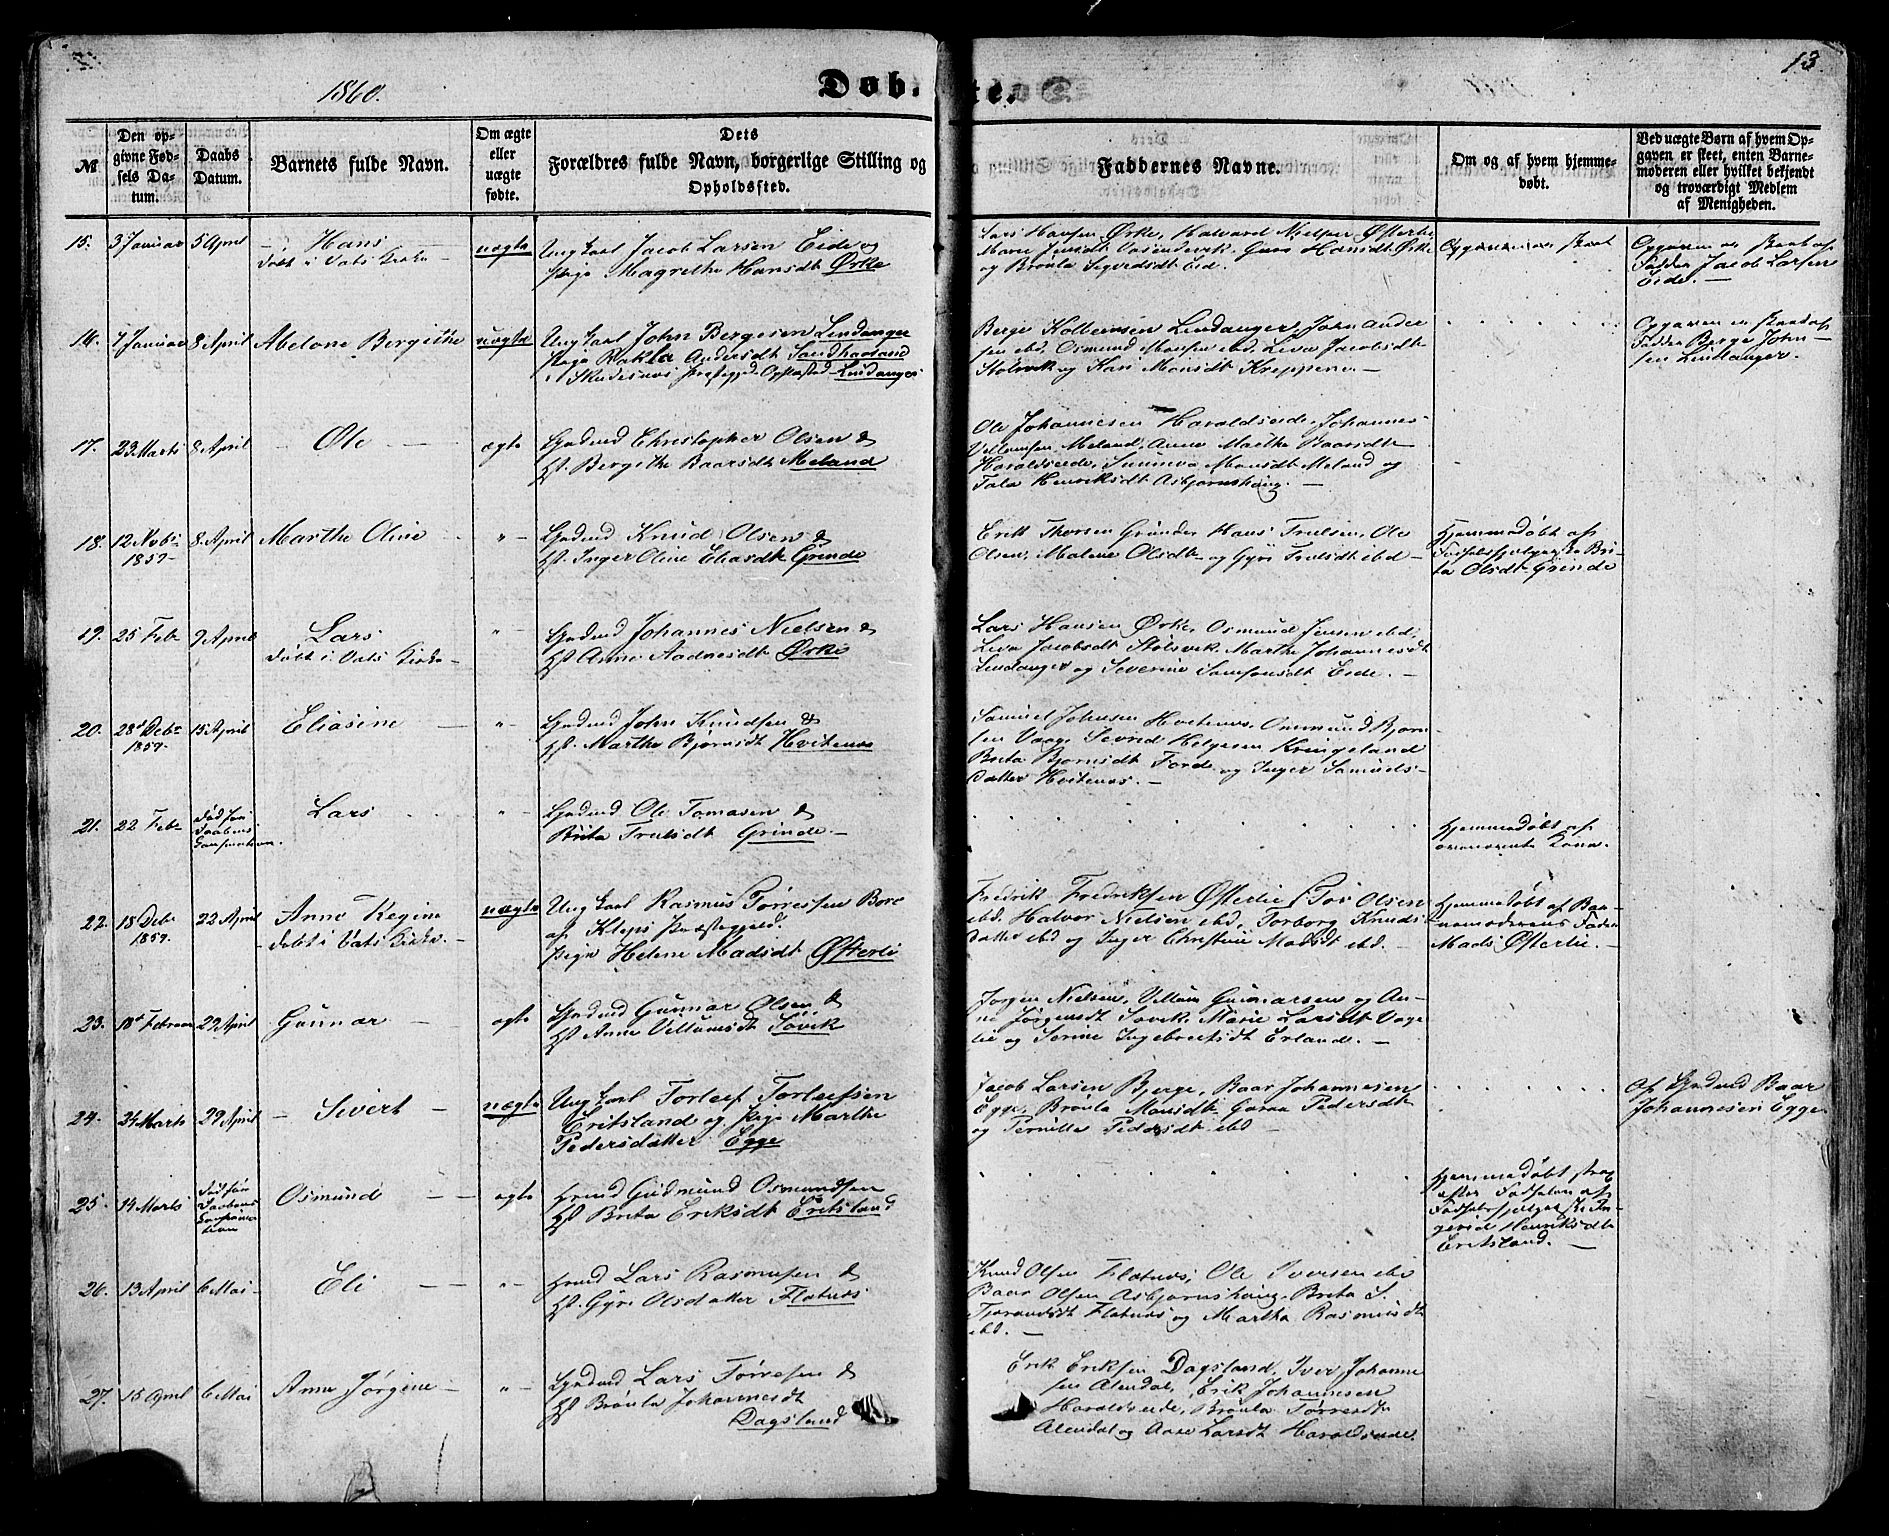 13
1860.
Døbte.
№
Den opgivne Fødsels Datum.
Daabs Datum.
Barnets fulde Navn.
Om ægte eller uægte fødte.
Dets
Forældres fulde Navn, borgerlige Stilling og
Opholdssted.
Faddernes Navne.
Om og af hvem hjemmedøbt.
Ved uægte Børn af hvem Opgaven er skeet, enten Barnemoderen eller hvilket bekjendt og troværdigt Medlem af Menigheden.
15. 3 Januar 5 April Hans uægte Ungkarl Jacob Larsen Eide og
døbt i Vats Kirke Pige Magrethe Hansdt Ørke
Lars Hansen Ørke, Halvard Nielsen Østerlie
og Brønla Sigvedsdt Eid.
Opgaven er skeet af
Fadder Jacob Larsen
Eide.
16. 7 Januar 8 April Abelone Bergithe uægte Ungkarl John Bergesen Lindanger
Pige Andersdt Sandhaaland
Skudesnes Præstegjeld Opholdssted Lindanger
Berge Kolbeinsen Lindanger, John Ander
sen ibd. Osmund Monsen ibd. Liva Jacobsdt
Stolsvik og Kari Monsdt Kreppene
Opgaven er skeet af
Fadder Berge John
sen Lindanger.
17. 23 Marts 8 April Ole ægte Grdmd Christopher Olsen &
Hst. Bergithe Baarsdt Meland
Ole Johannesen Haraldseide, Johannes
Villumsen Meland, Anne Marthe Baarsdt
Haraldseide, Sunniva Monsdt Meland og
Tala Henriksdt Asbjørnshoug.
18. 12 Novb: 8 April Marthe Oline " Grdmd Knud Olsen &
1859 Hst. Inger Oline Eliasdt Grinde
Erik Thorsen Grinde, Hans Trulsen, Ole
Olsen, Malene Olsdt og Gyri Trulsdt ibd
Hjemmedøbt af
Fødselshjelperske Bri-
ta Olsdt Grinde
19. 25 Feb 9 April Lars " Grdmd Johannes Nielsen &
døbt i Vats Kirke Hst Anne Aadnesdt Ørke
Lars Hansen Ørke, Osmund Jensen ibd,
Liva Jacobsdt Stolsvik, Marthe Johannesdt
Lindanger og Severine Samsonsdt Eide.
20. 28 Debr 15 April Eliasine " Grdmd John Knudsen &
1859. Hst. Marthe Bjørnsdt Hvitenes
Samuel Johnsen Hvitenes, Ommund Bjørn
sen Vaage, Sevrid Helgesen Kringeland
Brita Bjørnsdt Førde og Inger Samuels-
datter Hvitenes.
21. 22 Feb Død før Daabens Confirmation. Lars " Grdmd Ole Tomasen &
Brita Trulsdt Grinde.
Hjemmedøbt af
ovennævnte Kone.
22. 18 Deb 22 April Anne Regine uægte Ungkarl Rasmus Tørresen Bore
1859. døbt i Vats Kirke. af Kleps Præstegjeld.
Pige Helene Madsdt Østerli
Fredrik Fredriksen Østerlie, Tor Olsen
ibd. Halvor Nielsen ibd, Torborg Knuds
datter ibd og Inger Christine Madsdt ibd.
Hjemmedøbt af Bar-
nemoderens Fader
Mads Østerlie.
23. 18 Februar 29 April Gunnar ægte Grdmd Gunnar Olsen &
Hst Anne Villumsdt Søvik
Jørgen Nielsen, Villum Gunnarsen og An-
ne Jørgensdt Søvik, Marie Larsdt Vage
lie og Serine Ingebretsdt Erlande.
24. 24 Marts 29 April Sivert uægte Ungkarl Torleef Torleefsen
Eritsland og Pige Marthe
Pedersdatter Egge
Jacob Larsen Bjerge, Baar Johannesen
Egge, Brønla Monsdt, Guroa Pedersdt
og Pernille Pedersdt ibd
Af Grdmd Baar
Johannesen Egge
25. 14 Marts Død før Daabens Confirmation Osmund ægte Hrmd Gudmund Osmundsen
Hst Brita Eriksdt Eritsland
Hjemmedøbt strax
efter Fødselen af
Fødselshjelperske In-
gerid Henriksdt
Eritsland.
26. 13 April 6 Mai Eli " Hrmd Lars Rasmusen &
Hst. Gyri Olsdatter Flatnes
Knud Olsen Flatnes, Ole Iversen ibd
Baar Olsen Asbjørnshoug, Brita S.
Tjerandsdt Flatnes og Martha Rasmusdt
ibd.
27. 15 April 6 Mai Anne Jørgine " Grdmd Lars Tørresen &
Hst Brønla Johannesdt
Dagsland
Erik Eriksen Dagsland, Iver Johanne
sen Alendal, Erik Johannesen
Haraldseide, Brønla Tørresdt
Alendal og Aase Larsdt Haraldseide.